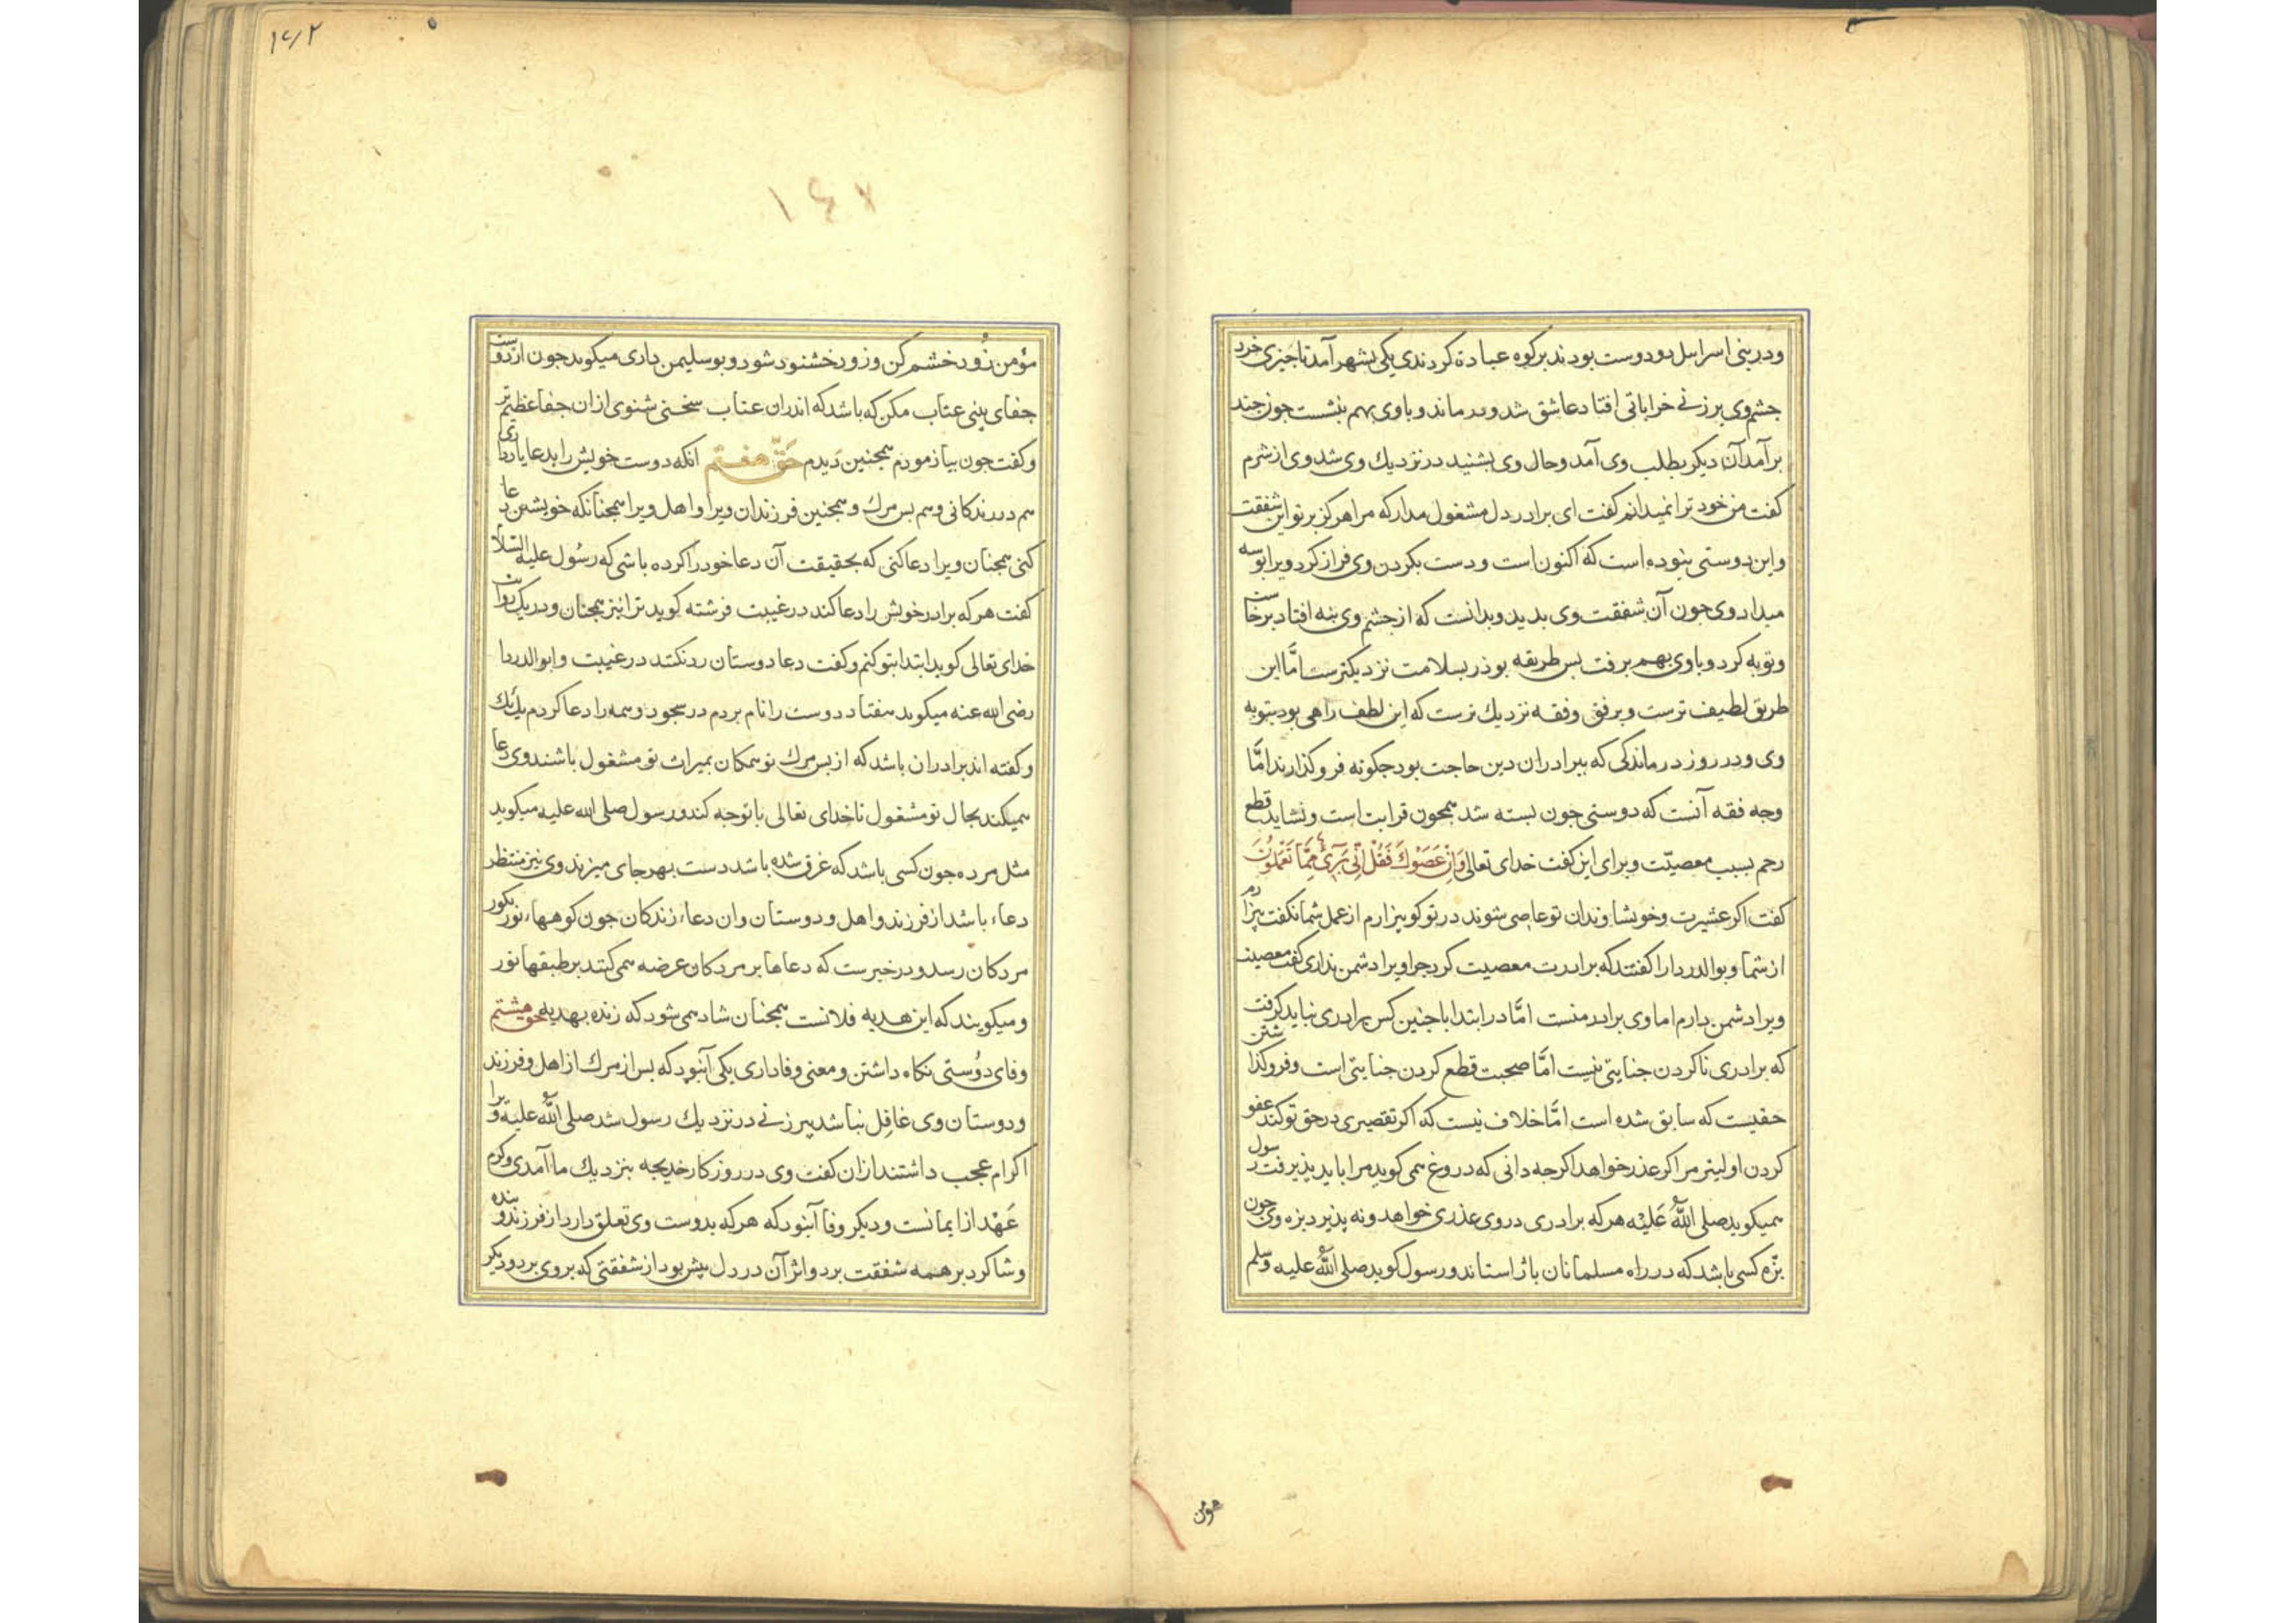 ودر بنی اسرایل دو دوست بودند بر کوه عبادة کردندی یکی بشهر آمد تا جیزی خرد
جشم وی بر زنی خراباتی افتاد عاشق شد ودر ماند و با وی بهم بنشست جون جند
بر آمد آن دیکر بطلب وی آمد وحال وی بشنید در نزدیك وی شد وی از شرم
کفت من خود ترا نمیدانم کفت ای برادر دل مشغول مدار که مرا هرکز بر تو این شفقت
واین دوستی نبوده است که اکنون است ودست بکردن وی فراز کرد ویرا بوسه
میداد وی جون آن شفقت وی بدید وبدانست که از جشم وی نیه افتاد برخاست
وتوبه کرد و باوی بهم برفت بس طریقه بوذر بسلامت نزدیکترست امّا این
طریق لطیف ترست وبرفق وفقه نزدیك ترست که این لطف راهی بود بتوبه
وی ودر روز درماندکی که ببرادران دین حاجت بود جکونه فروکذارند امّا
وجه فقه آنست که دوستی جون بسته شد همجون قرابت است ونشاید قطع
رحم بسبب معصیّت وبرای این کفت خدای تعالی وَاِنْ عَصَوْكَ فَقُلْ اِنّی بَرِیٓءٌ مِمَّا تَعْمَلُونَ
کفت اکر عشیرت وخویشاوندان تو عاصی شوند در تو کو بیزارم از عمل شما نکفت بیزارم
از شما وبوالدردا را کفتند که برادرت معصیت کرد جرا ویرا دشمن نداری کفت معصیت
ویرا دشمن دارم اما وی برادر منست امّا در ابتدا با جنین کس برادری نباید کرفت
که برادری ناکردن جنایتی نیست امّا صحبت قطع کردن جنایتی است وفروکذاشتن
حقیست که سابق شده است امّا خلاف نیست که اکر تقصیری در حق تو کند عفو
کردن اولیتر مر اکر عذر خواهد اکرجه دانی که دروغ همی کوید مرا باید پذیرفت رسول
همیکوید صلی اللّٰه عَلَیْه هر که برادری در وی عذری خواهد ونه پذیرد بزه وی جون
بزّه کسی باشد که در راه مسلمانان باژ استاند ورسول کوید صلی اللّٰه علیه وسلم
مؤمن
۱۴۲
۱٤٧
مؤمن زُود خشم کن وزود خشنود شود وبوسلیمن داری میکوید جون از دوست
جفای بینی عتاب مکن که باشد که اندران عتاب سخنی شنوی ازان جفا عظیم تر
وکفت جون بیازمودم همجنین دیدم حَقّ هفتم انکه دوست خویش را بدعا یاد داری
هم در زندکانی وهم بس مرك وهمجنین فرزندان ویرا واهل ویرا همجنانکه خویشتن دعا
کنی همجنان ویرا دعا کنی که بحقیقت آن دعا خود را کرده باشی که رسُول علیه السّلام
کفت هر که برادر خویش را دعا کند در غیبت فرشته کوید ترا نیز همجنان ودریك روایت
خدای تعالی کوید ابتدا بتو کنم وکفت دعا دوستان رد نکنند در غیبت وابوالدردا
رضی الله عنه میکوید هفتاد دوست را نام بردم در سجود وهمه را دعا کردم یك یك
وکفته اند برادران باشد که از بس مرك تو همکان بمیراث تو مشغول باشند وی دعا
همیکند بحال تو مشغول تا خدای تعالی با تو جه کند ورسول صلی الله علیه میکوید
مثل مرده جون کسی باشد که غرق شده باشد دست بهر جای میزند وی نیز منتظر
دعاء باشد از فرزند واهل ودوستان وان دعاء زندکان جون کوهها، نور بکور
مردکان رسد ودر خبرست که دعاها بر مردکان عرضه همی کنند بر طبقها نور
ومیکویند که این هدیه فلانست همجنان شاد همی شود که زنده بهدیه حق هیشتم
وفای دوُستی نکاه داشتن ومعنی وفاداری یکی آنبود که بس از مرك از اهل وفرزند
ودوستان وی غافِل نباشد پیر زنی در نزدیك رسول شد صلی اللّٰه علیه و ویرا
اکرام عجب داشتند ازان کفت وی در روزکار خدیجه بنزدیك ما آمدی وکرم
عَهْد از ایمانست ودیکر وفا آنبود که هرکه بدوست وی تعلق دارد از فرزند وبنده
وشاکرد بر همه شفقت برد واثر آن در دل بیش بود از شفقتی که بر وی برد ودیکر